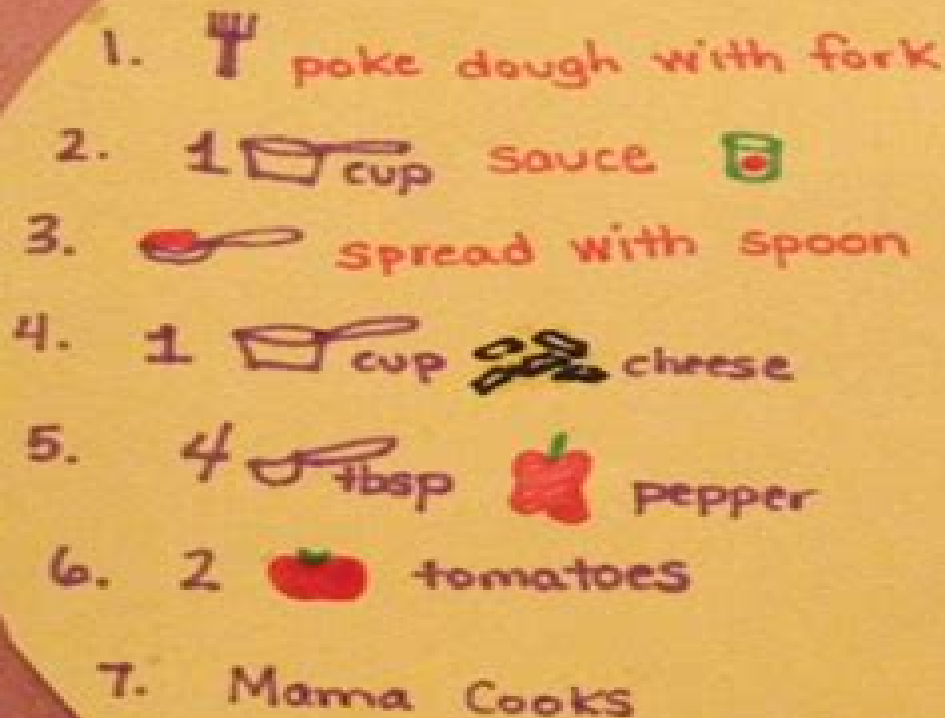 1. poke dough with fork
2. 1 cup sauce
3. spread with spoon
4. 1 cup cheese
5. 4 tbsp pepper
6. 2 tomatoes
7. Mama Cooks